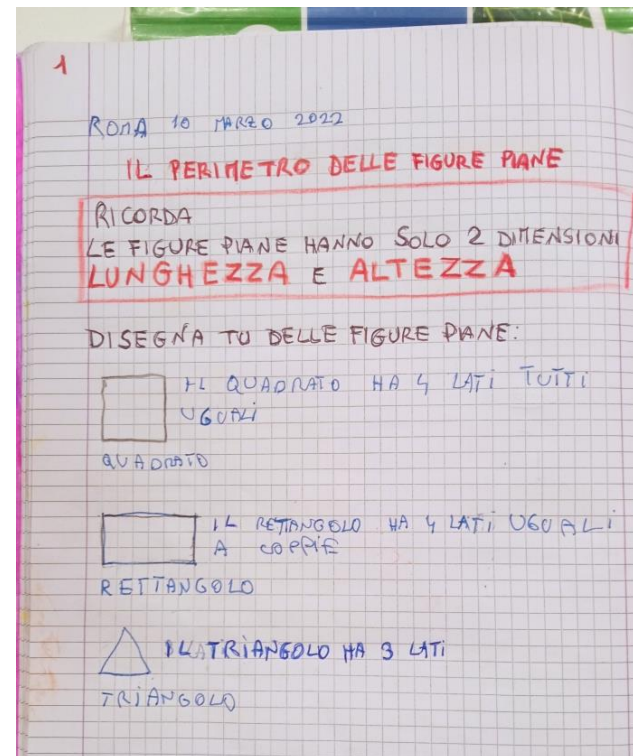 1
ROMA 10 MARZO 2022
IL PERIMETRO DELLE FIGURE PIANE
RICORDA
LE FIGURE PIANE HANNO SOLO 2 DIMENSIONI
LUNGHEZZA E ALTEZZA
DISEGNA TU DELLE FIGURE PIANE:
IL QUADRATO HA 4 LATI TUTTI
UGUALI
QUADRATO
IL RETANGOLO HA 4 LATI UGUALI
A COPPIE
RETTANGOLO
IL TRIANGOLO HA 3 LATI
TRIANGOLO